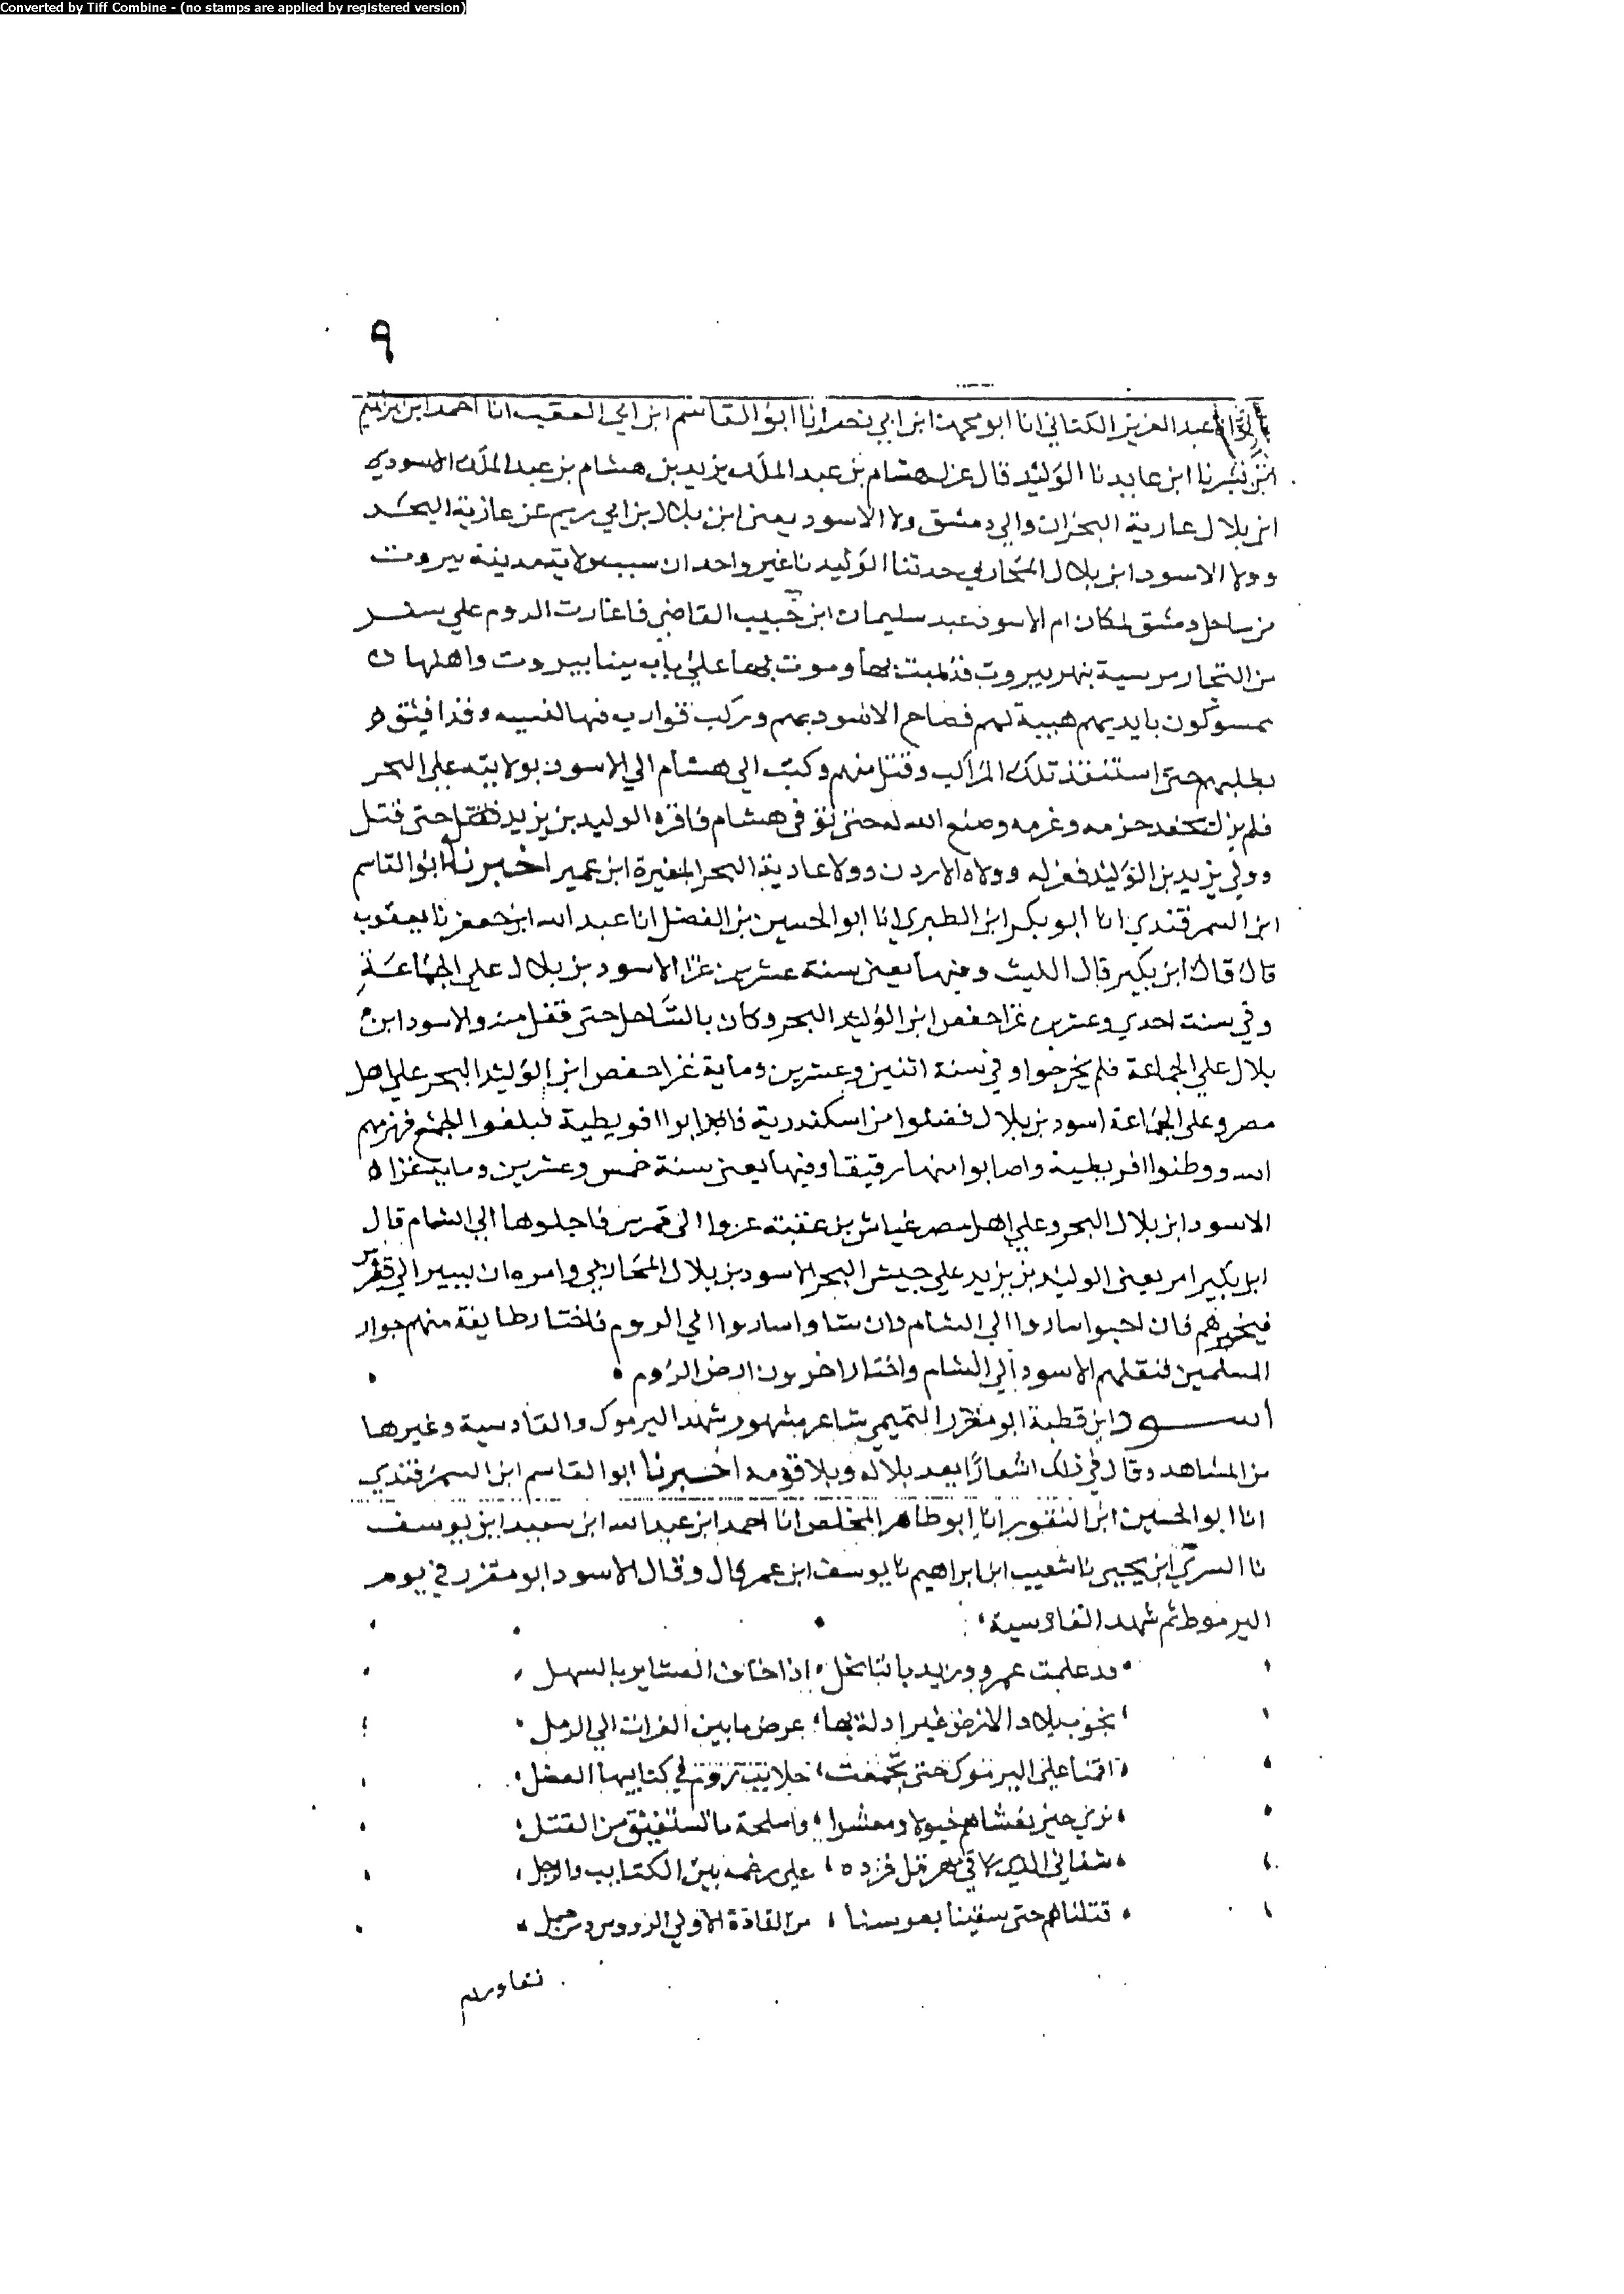 Converted by Tiff Combine - (no stamps are applied by registered version)
٩
عبد العزيز الكتاني انا ابو محمد ابن ابي نصر انا ابو القاسم ابن ابي العقب انا احمد ابن ابراهيم
ابن عايد نا الوليد قال عزل هشام بن عبد الملك يزيد بن هشام بن عبد الملك الاسود
ابن بلال عارية البحران والي دمشق ولا الاسود يعني ابن بلال بن ابي ريم عن عازية البحر
وولا الاسود ابن بلال المحاربي حدثنا الوليد نا غير واحد ان سبب ولايته مدينة بيروت
من ساحل دمشق لمكان ام الاسود عبد سليمان ابن حبيب القاضي فاغارت الروم علي سفر
من التجار مرسية بنهر بيروت فذهبت بها ومرت بها علي باب مينا بيروت واهلها
ممسوكون بايديهم هيبة لهم فصاح الاسود بهم وركب قوارب فيها
بطلبهم حتى استنقذ تلك المراكب وقتل منهم وكتب الي هشام الي الاسود بولايته علي البحر
فلم يزل حزمه وعزمه وصنع الله له حتى توفي هشام فاقره الوليد بن يزيد حتى قتل
وولي يزيد بن الوليد فعزله وولاه الاردن وولا عادية البحر المغيرة ابن عمير اخبرنا ابو القاسم
ابن السمرقندي انا ابو بكر ابن الطبري انا ابو الحسين بن الفضل انا عبد الله ابن جعفر نا يعقوب
قال قال ابن بكير قال الليث وفيها يعني سنة عشرين غزا الاسود بن بلال علي الجماعة
وفي سنة احدي وعشرين غزا حفص ابن الوليد البحر وكان بالساحل حتى قفل منه والاسود ابن
بلال علي الجماعة فلم يخرجوا وفي سنة اثنين وعشرين وماية غزا حفص ابن الوليد البحر علي اهل
مصر وعلي الجماعة اسود بن بلال ففصلوا من اسكندرية اقريطية فبلغوا الجمع فهزمهم
الله ووطنوا اقريطية واصابوا منها رقيقا وفيها يعني سنة خمس وعشرين وماية غزاه
الاسود ابن بلال البحر وعلي اهل مصر غياش بن عقبة عزوا الي قبرس فاجلوها الي الشام قال
ابن بكير امر يعني الوليد بن يزيد علي جيش البحر الاسود بن بلال المحاربي وامره ان يسير الي قبرس
فيخيرهم فان احبوا ساروا الي الشام وان شاوا ساروا الي الروم فاختار طايفة منهم جوار
المسلمين فنقلهم الاسود الي الشام واختار اخرون ارض الروم
اسود ابن قطبة ابو مفزر التميمي شاعر مشهور شهد اليرموك والقادسية وغيرها
من المشاهد وقال في ذلك اشعارا يعد بلاه وبلا قومه اخبرنا ابو القاسم ابن السمرقندي
انا ابو الحسين ابن النقور انا ابو طاهر المخلص انا احمد ابن عبد الله ابن سعيد ابن يوسف
نا السري ابن يحيى نا شعيب ابن ابراهيم نا يوسف ابن عمر قال وقال الاسود ابو مقزر في يوم
اليرموط ثم شهد القادسية
قد علمت عمرو وزيد باننا نحل اذا خاف العشاير بالسهل
نجوب بلاد الارض غير ادلة بها عرض ما بين الفرات الي الرمل
اقمنا علي اليرموك حتى تجمعت جلايب روم في كتايبها العضل
نري حين نغشاهم خيولا ومعشرا واسلحة ما تستفيق من القتل
شفاني الذي لاقى هرقل فرده علي رغمه بين الكتايب والرجل
قتلناهم حتى سفينا نفوسنا من القادة الاولي الرووس ومن حمل